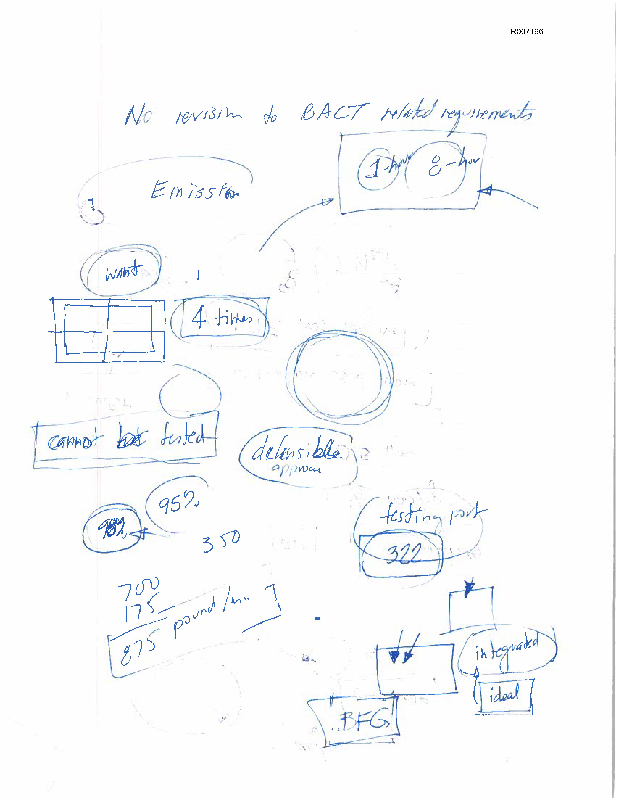 R007196
No revision to BACT related requirements
1-hour 8-hour
Emission
want
4 times
cannot be tested
defensible
95%
98%
350
testing port
322
700
175
875 pound/
integrated
ideal
BFG